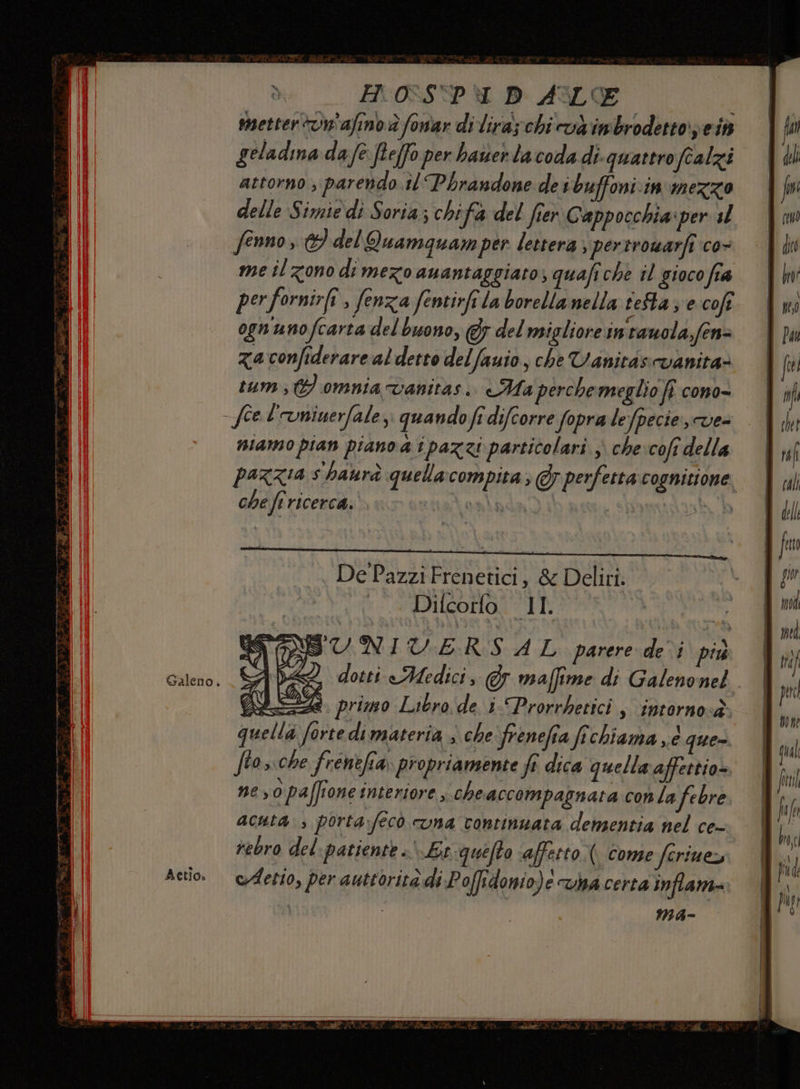 HOSPIDALE
metter un'asino à sonar di lira; chi và in brodetto, e in
geladina da se stesso per hauer la coda di quattro scalzi
attorno, parendo il Phrandone de i buffoni in mezzo
delle Simie di Soria; chi fa del fier Cappocchia per il
senno, & del Quamquam per lettera, per trouarsi co-
me il zono di mezo auantaggiato, quasi che il gioco sia
per fornirsi, senza sentirsi la borella nella testa; e cosi
ogn'uno scarta del buono, & del migliore in tauola, sen-
za considerare al detto del sauio, che Vanitas vanita-
tum, & omnia vanitas. Ma perche meglio si cono-
sce l'vniuersale, quando si discorre sopra le specie, ve-
niamo pian piano à i pazzi particolari, che cosi della
pazzia s'haurà quella compita, & perfetta cognitione
che si ricerca.
De'Pazzi Frenetici, & Deliri.
Discorso II.
UNIVERSAL parere de i più
Galeno. dotti Medici, & massime di Galeno nel
primo Libro de i Prorrhetici, intorno à
quella sorte di materia, che frenesia si chiama, è que-
sto, che frenesia propriamente si dica quella affettio-
ne, ò passione interiore, che accompagnata con la febre
acuta, porta seco vna continuata dementia nel ce-
rebro del patiente. Et questo affetto (come scriue
Aetio. Aetio, per auttorità di Possidonio) è vna certa inflam-
ma-